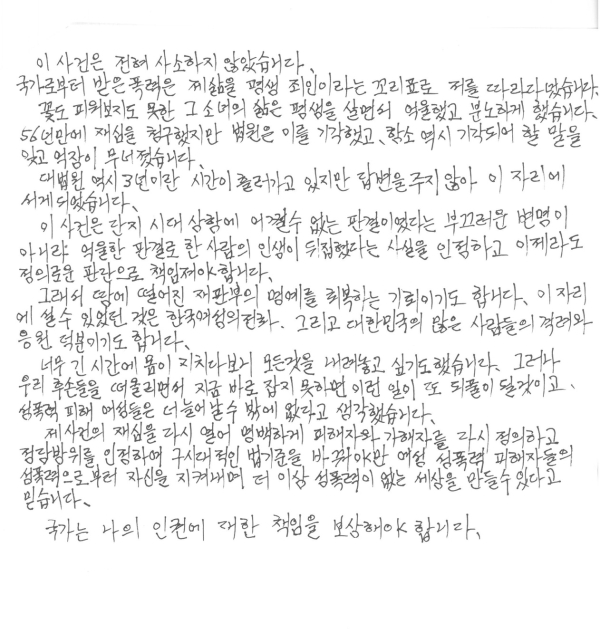 이 사건은 전혀 사소하지 않았습니다.
국가로부터 받은 폭력은 제 삶을 평생 죄인이라는 꼬리표로 저를 따라다녔습니다.
꽃도 피워보지도 못한 그 소녀의 삶은 평생을 살면서 억울했고 분노하게 했습니다.
56년만에 재심을 청구했지만 법원은 이를 기각했고, 항소 역시 기각되어 할 말을
잊고 억장이 무너졌습니다.
대법원 역시 3년이란 시간이 흘러가고 있지만 답변을 주지 않아 이 자리에
서게 되었습니다.
이 사건은 단지 시대 상황에 어쩔수 없는 판결이였다는 부끄러운 변명이
아니라 억울한 판결로 한 사람의 인생이 뒤집혔다는 사실을 인정하고 이제라도
정의로운 판단으로 책임져야 합니다.
그래서 땅에 떨어진 재판부의 명예를 회복하는 기회이기도 합니다. 이 자리
에 설 수 있었던 것은 한국여성의전화. 그리고 대한민국의 많은 사람들의 격려와
응원 덕분이기도 합니다.
너무 긴 시간에 몸이 지치다보니 모든것을 내려놓고 싶기도 했습니다. 그러나
우리 후손들을 떠올리면서 지금 바로 잡지 못하면 이런 일이 또 되풀이 될것이고.
성폭력 피해 여성들은 더 늘어날 수 밖에 없다고 생각했습니다.
제 사건의 재심을 다시 열어 명백하게 피해자와 가해자를 다시 정의하고
정당방위를 인정하며 구시대적인 법기준을 바꿔야만 여성 성폭력 피해자들의
성폭력으로부터 자신을 지켜내며 더 이상 성폭력이 없는 세상을 만들수 있다고
믿습니다.
국가는 나의 인권에 대한 책임을 보상해야 합니다.